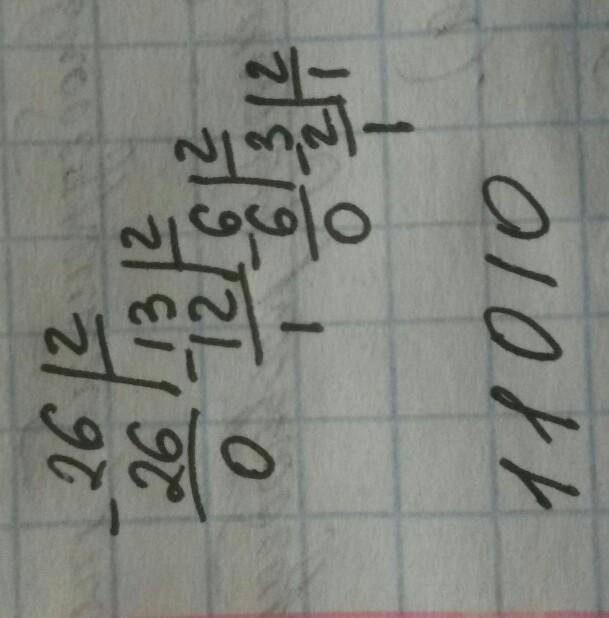 -26|2
26|13|2
0 -12|6|2
1 -6|3|2
0 -2|1
1
11010